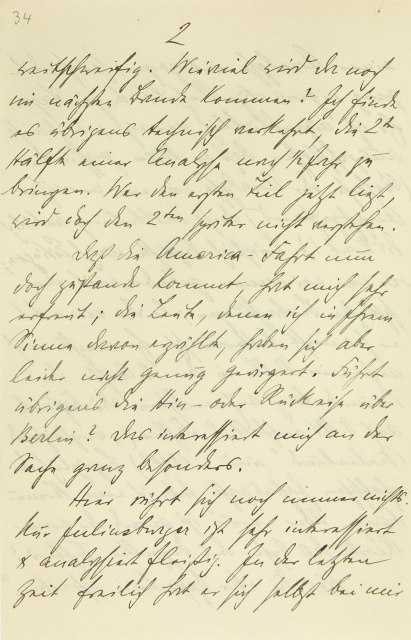 34
2
weitschweifig. Wieviel wird da noch
im nächsten Bande kommen? Ich finde
es übrigens technisch verkehrt, die 2te
Hälfte einer Analyse nach ½ Jahr zu
bringen. Wer den ersten Teil jetzt liest,
wird doch den 2ten später nicht verstehen.
Daß die America-Fahrt nun
doch zustande kommt, hat mich sehr
erfreut; die Leute, denen ich in Ihrem
Sinne davon erzählte, haben sich aber
leider nicht genug geärgert. Führt
übrigens die Hin- oder Rückreise über
Berlin? Das interessiert mich an der
Sache ganz besonders.
Hier rührt sich noch immer nichts.
Nur Juliusburger ist sehr interessiert
& analysiert fleißig. In der letzten
Zeit freilich hat er sich selbst bei mir